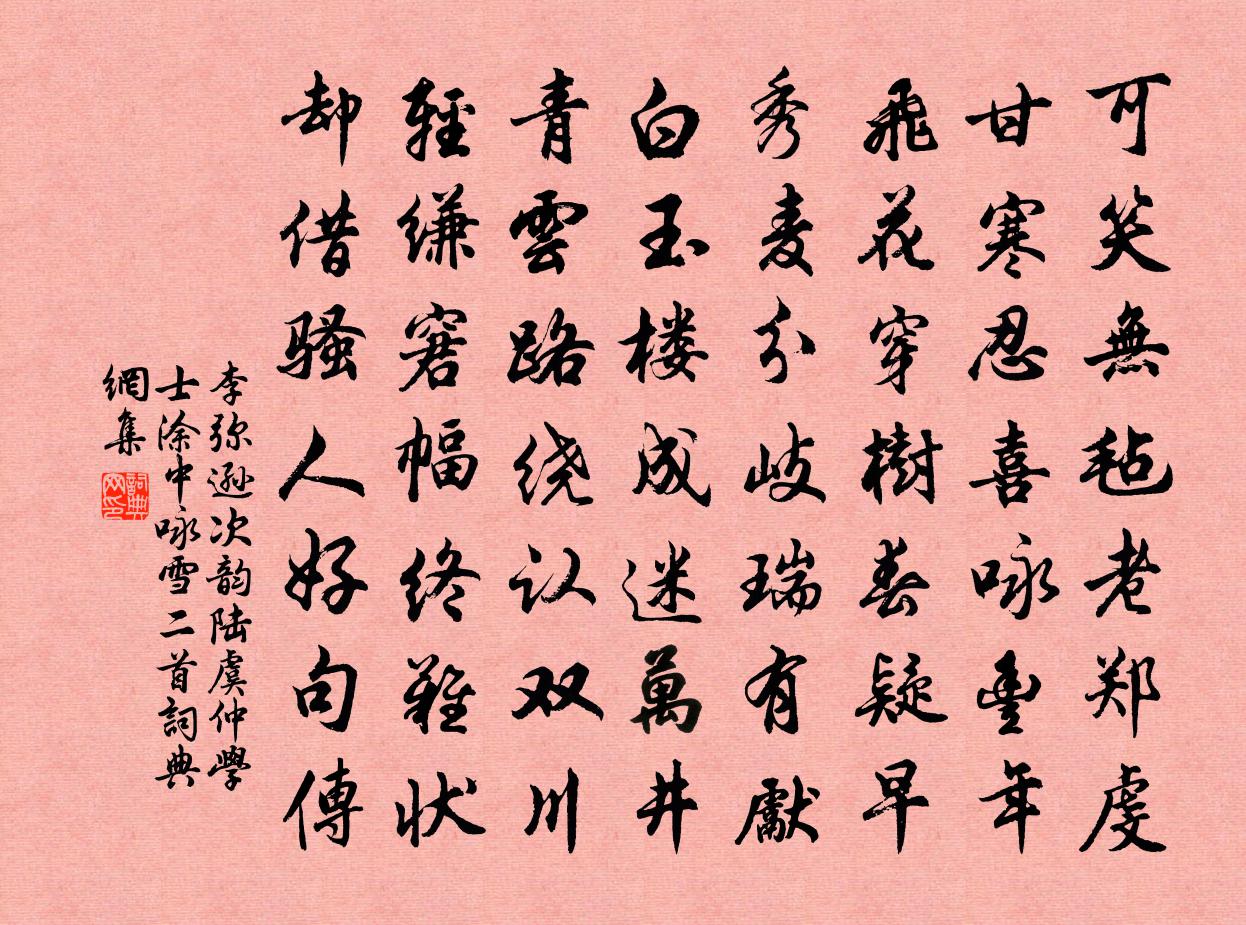 可笑無毡老郑虔
甘寒忍喜咏豐年
飛花穿樹春疑早
秀麦分岐瑞有獻
白玉楼成迷萬井
青雲路绕认双川
輕縑窘幅终難状
却借骚人好句傳
李弥遜次韵陆虞仲學
士涂中咏雪二首詞典
網集
詞典
网印